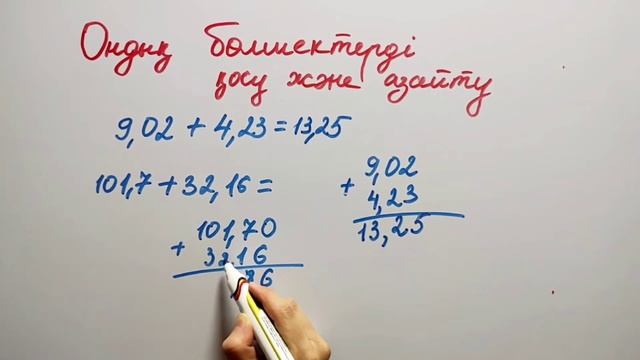 Ондық бөлшектерді
қосу және азайту
9,02 + 4,23 = 13,25
101,7 + 32,16 =
9,02
+
4,23
13,25
101,70
+
32,16
,86